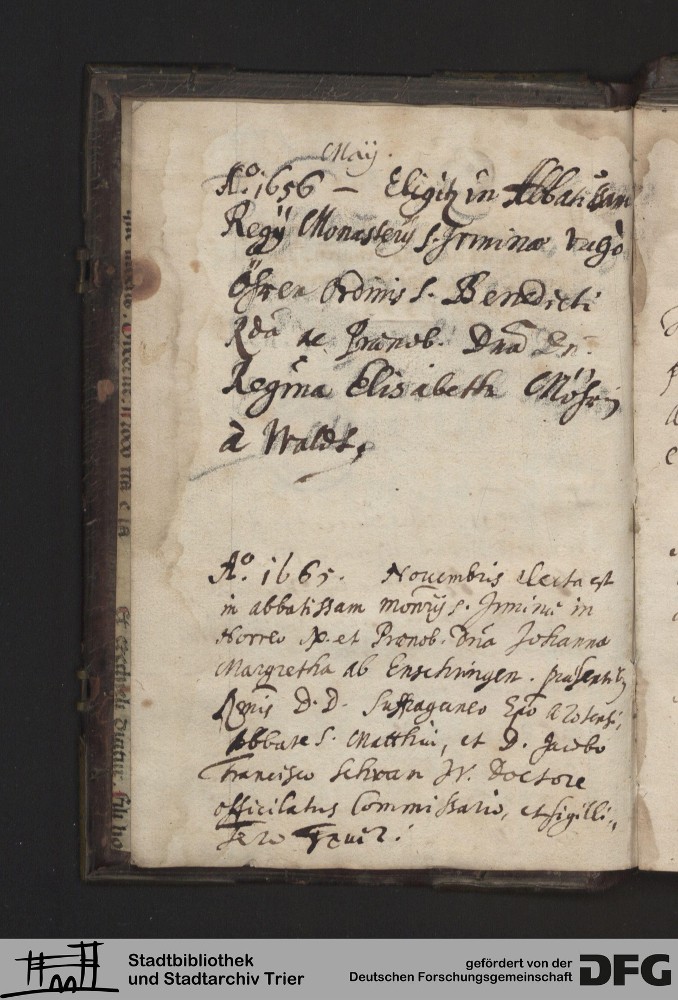 Maÿ.
Aº. 1656 — Eligitz in Abbatissam
Regÿ Monasterÿ S. Irminæ vulgò
Öhren Ordinis S. Benedicti
Rda ac Prænob. Dna Dn.
Regina Elisabetha Möhrin
à Waldt,
Aº. 1665. Nouembris electa est
in abbatissam monrÿ S. Irminæ in
Horreo et Prænob. Dna Johanna
Margretha ab Enschringen. præsentibz
D. D. Suffraganeo Epo Azotensi,
Abbate S. Matthiæ, et D. Jacobo
Francisco Schwan Doctore
officilatus Commissario, et sigilli„
fero
Stadtbibliothek
und Stadtarchiv Trier
gefördert von der
Deutschen Forschungsgemeinschaft
DFG